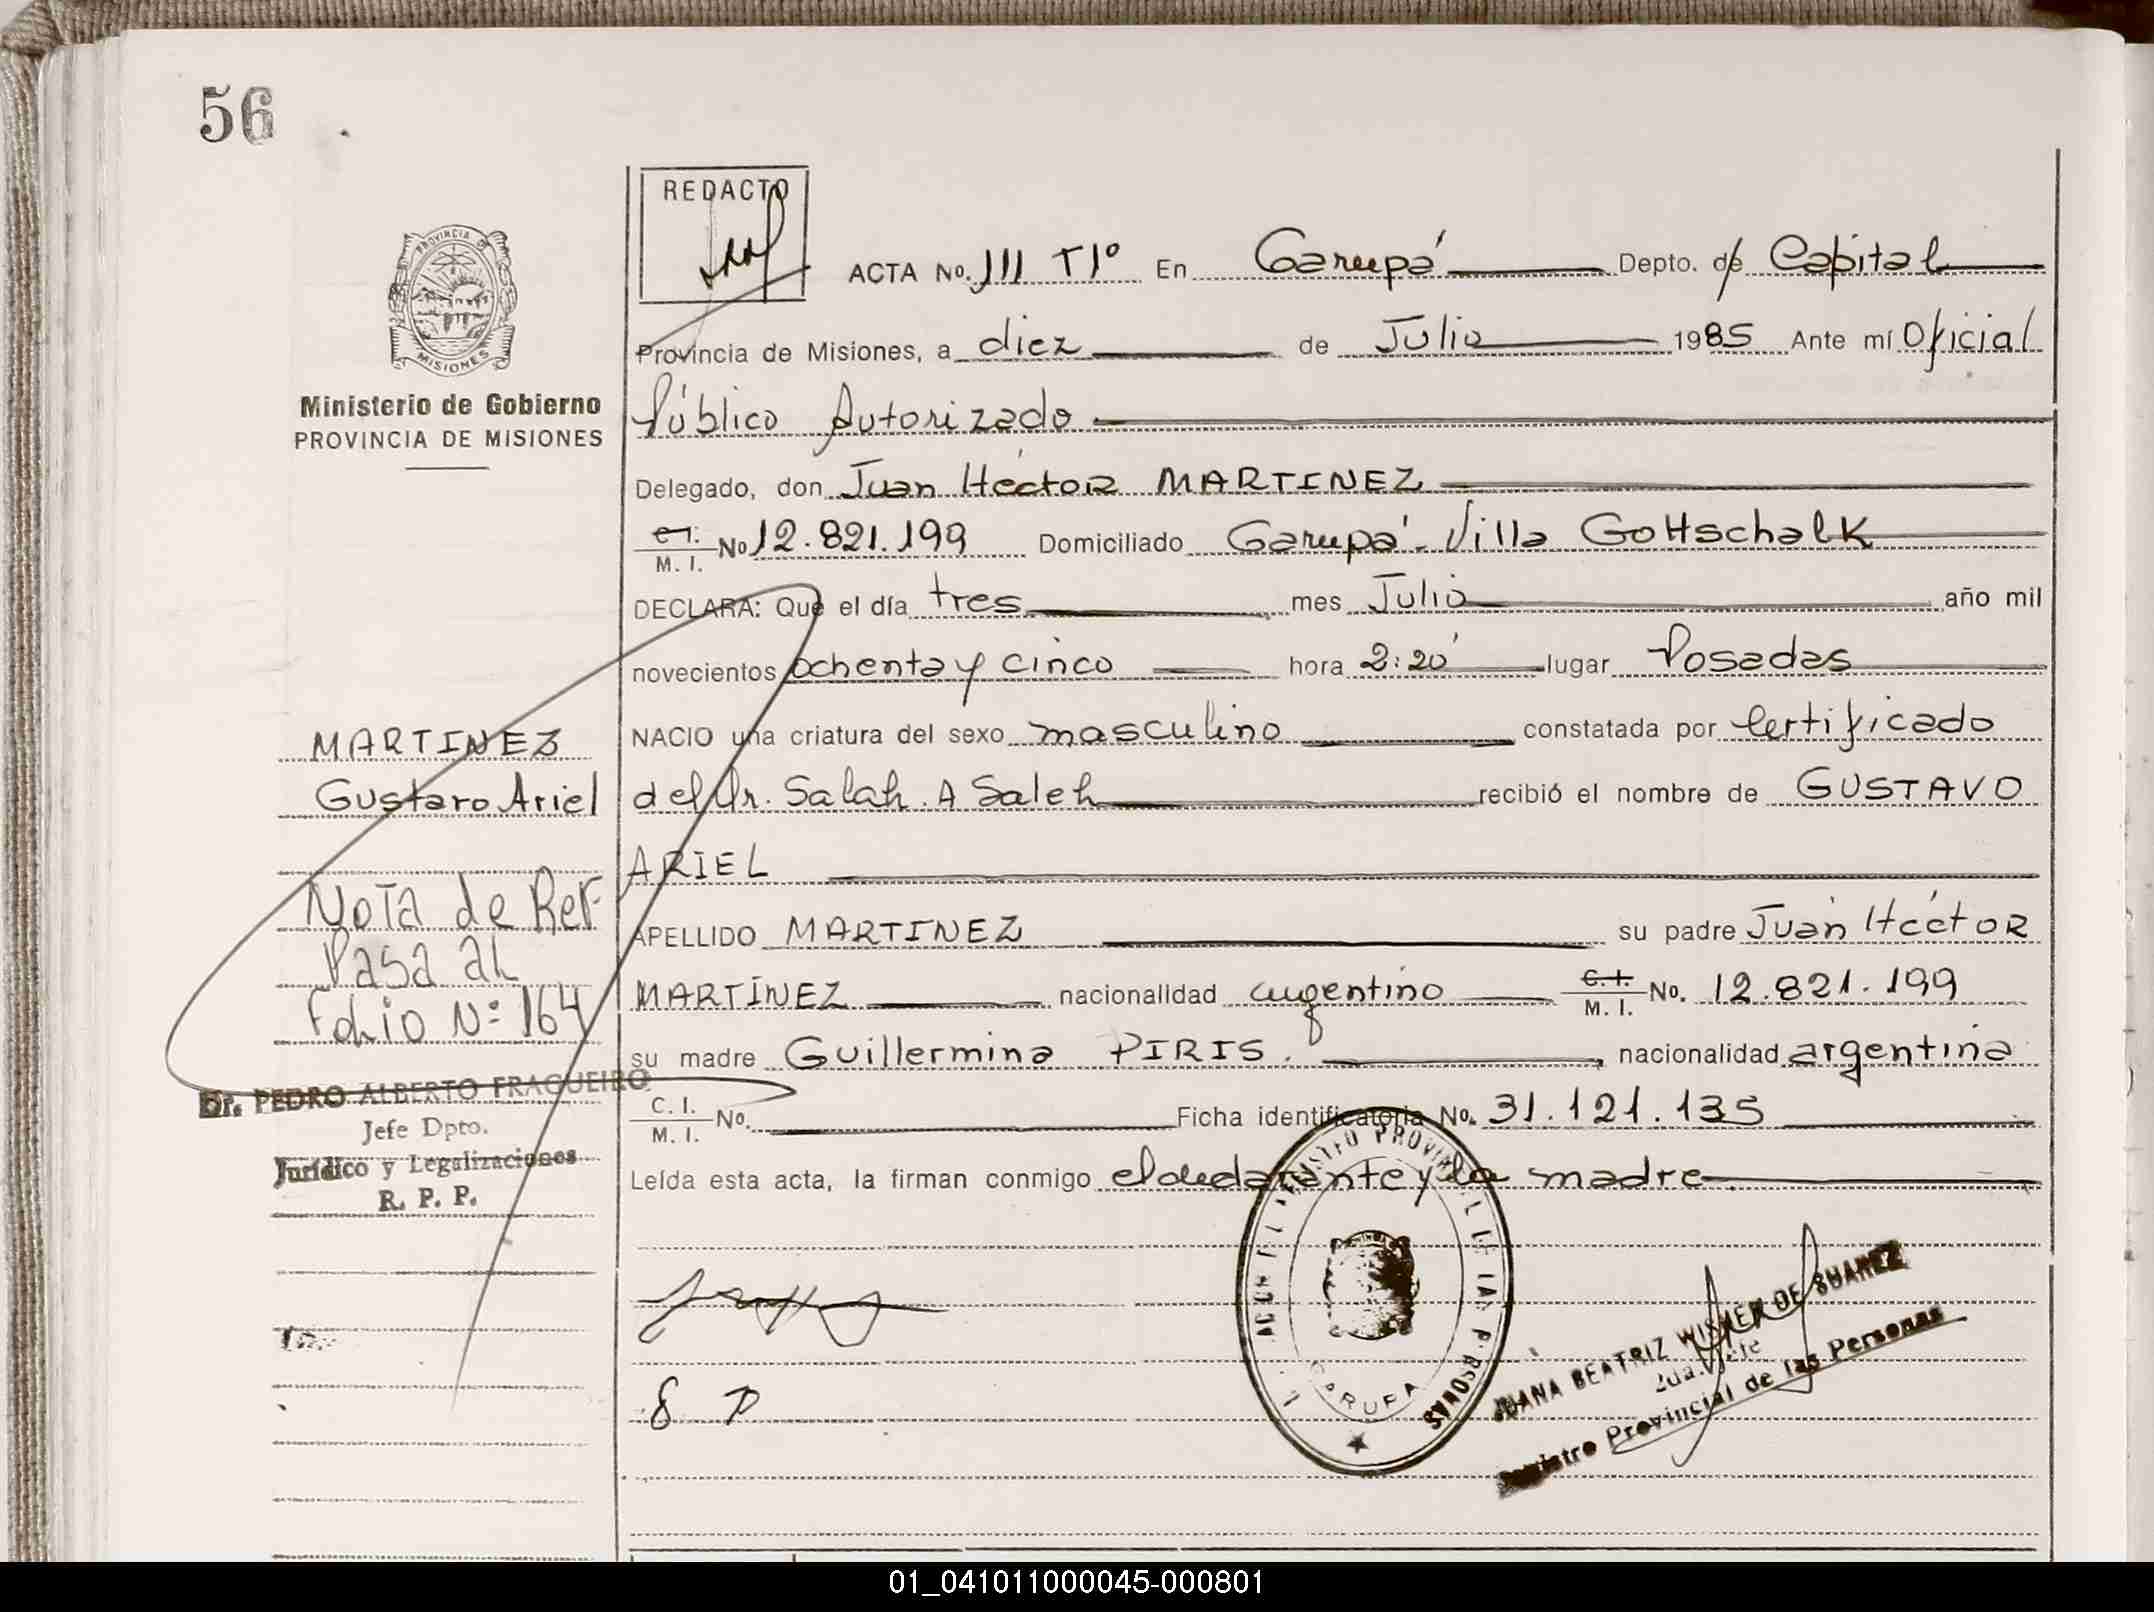 56
REDACTO
ACTA No. 111 TIº En Garupá Depto. de Capital
PROVINCIA DE
MISIONES
Provincia de Misiones, a diez de Julio 1985 Ante mí Oficial
Ministerio de Gobierno
PROVINCIA DE MISIONES
Público Autorizado
Delegado, don Juan Héctor MARTINEZ
C.I. M. I. No 12.821.199 Domiciliado Garupá - Villa Gottschalk
DECLARA: Que el día tres mes Julio año mil
novecientos ochenta y cinco hora 2:20 lugar Posadas
MARTINEZ
NACIO una criatura del sexo masculino constatada por Certificado
Gustavo Ariel
del Dr. Salah. A Saleh recibió el nombre de GUSTAVO
ARIEL
Nota de Ref
APELLIDO MARTINEZ su padre Juan Héctor
Pasa al
MARTÍNEZ nacionalidad argentino C.I. M. I. No. 12.821.199
Folio Nº 164
su madre Guillermina PIRIS. nacionalidad argentina
Dr. PEDRO ALBERTO FRAGUEIRO
C. I. M. I. No. Ficha identificatoria No. 31.121.135
Jefe Dpto.
Jurídico y Legalizaciones
Leída esta acta, la firman conmigo el declarante y la madre.
R. P. P.
GARUPA
JUANA BEATRIZ WISNER DE SUAREZ
2da. Jefe
Registro Provincial de las Personas
G P
01_041011000045-000801